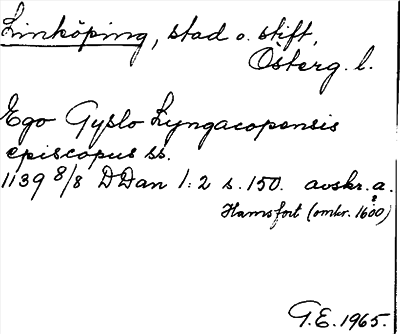 Linköping, stad o. stift,
Österg. l.
Ego Gyslo Lyngacopensis
episcopus ss.
1139 8/8 DDan 1:2 s. 150. avskr. a.
Hamsfort (omkr. 1600)
G.E. 1965.